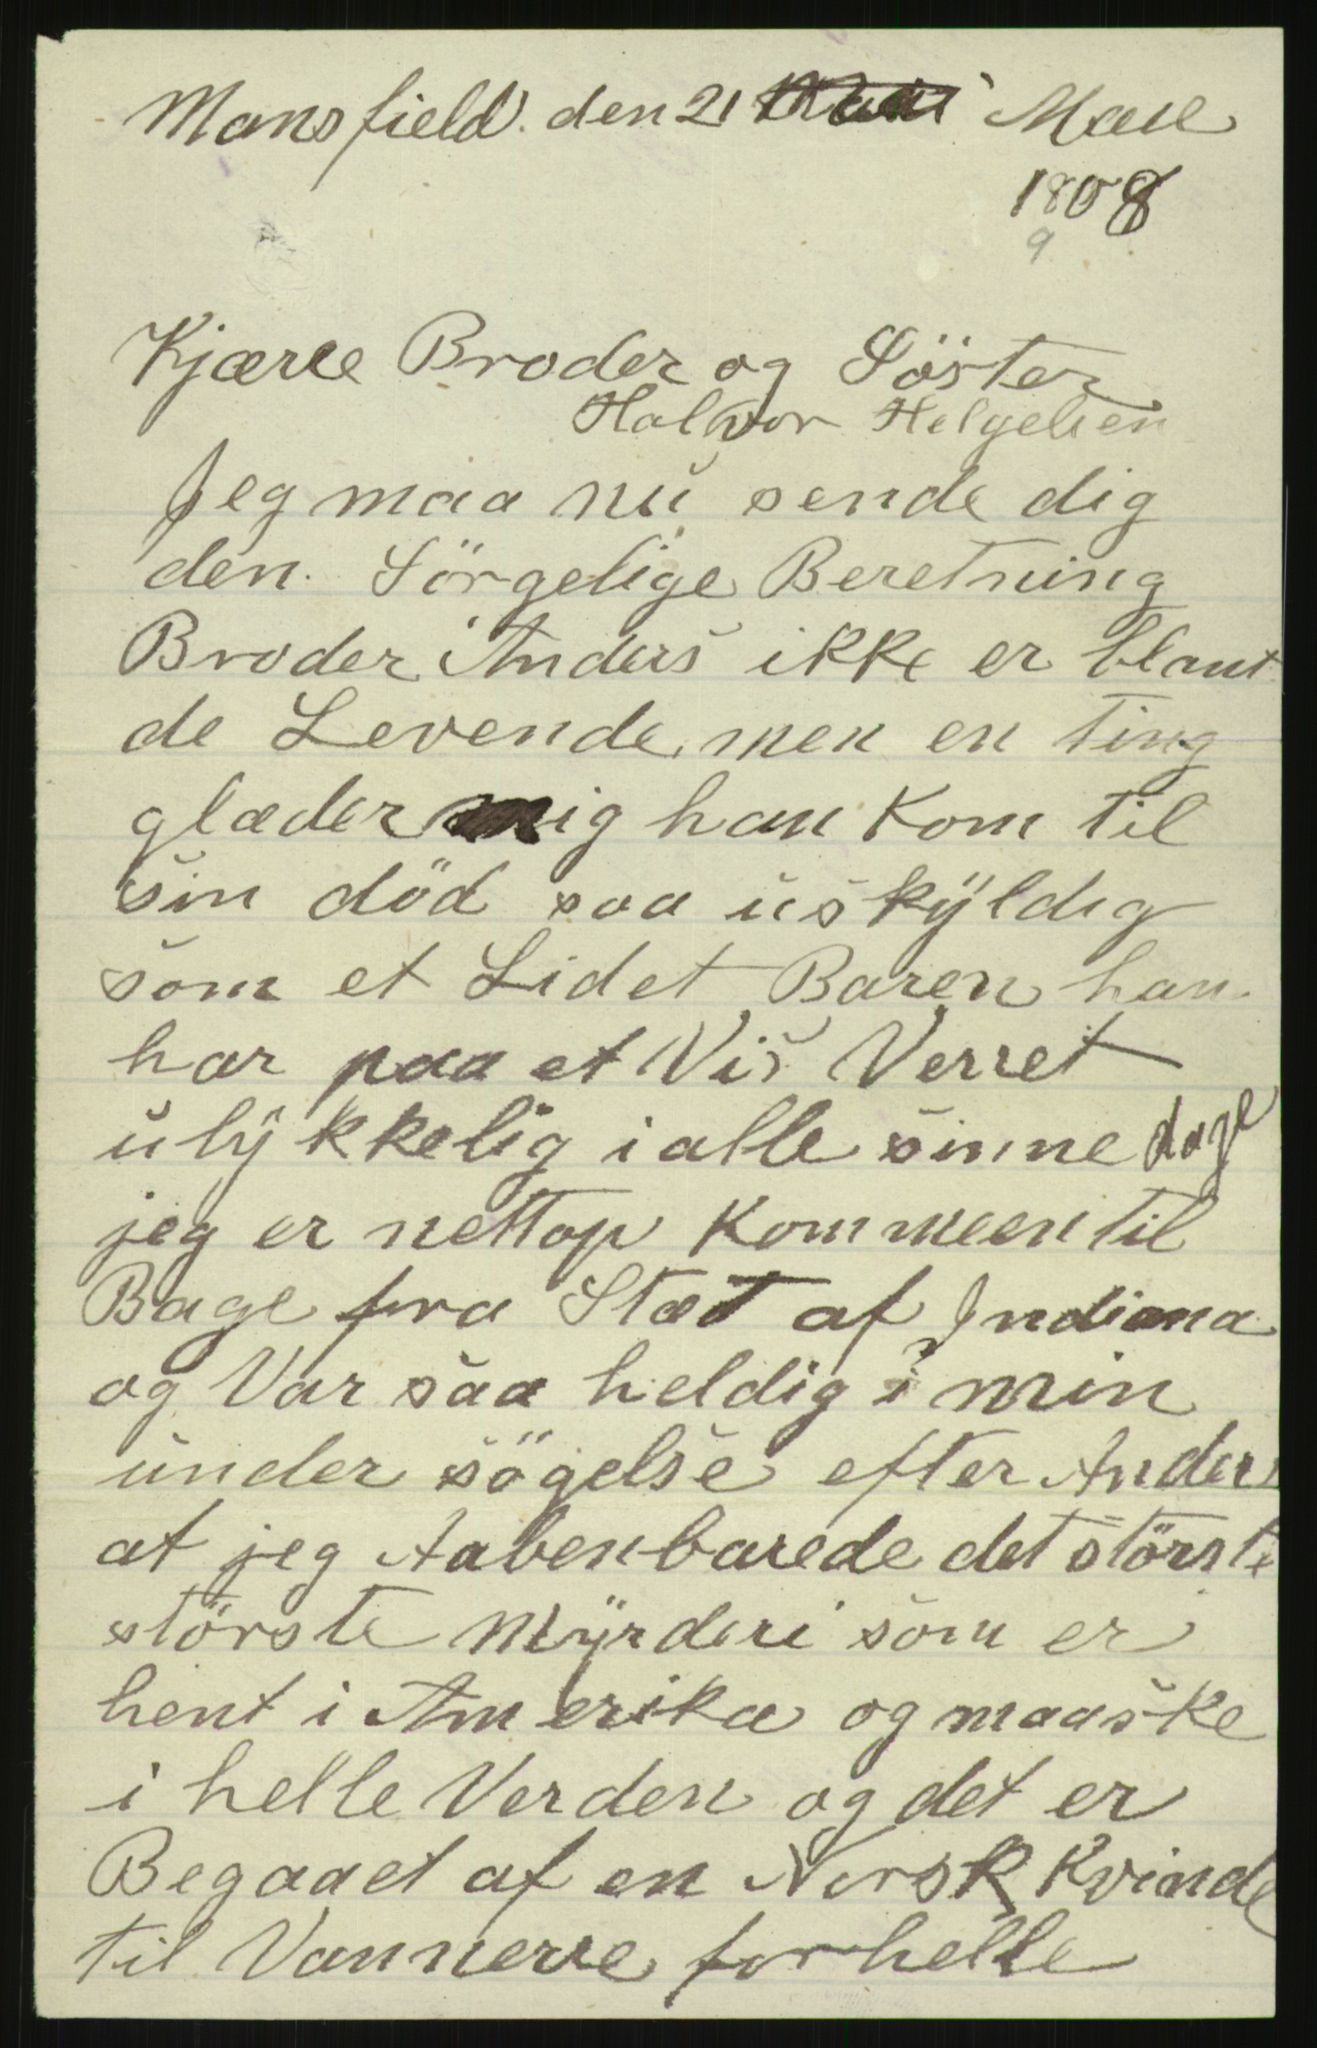 Mansfield. den 21 Maie
1808
9
Kjære Broder og Söster
Halvor Helgelien
Jeg maa nu sende dig
den Sörgelige Beretning
Broder Anders ikke er blant
de Levende men en ting
glæder mig han kom til
sin död saa uskyldig
som et Lidet Baren han
har paa et Vis Verret
ulykkelig i alle sinne dage
jeg er nettop kommeen til
Bage fra Stat af Indiana
og Var saa heldig i min
under sögelse efter Anders
at jeg Aabenbarede det störste
störste Myrderi som er
hent i Amerika og maaske
i helle Verden og det er
Begaaet af en Norsk Kvinde
til Vannerre for helle